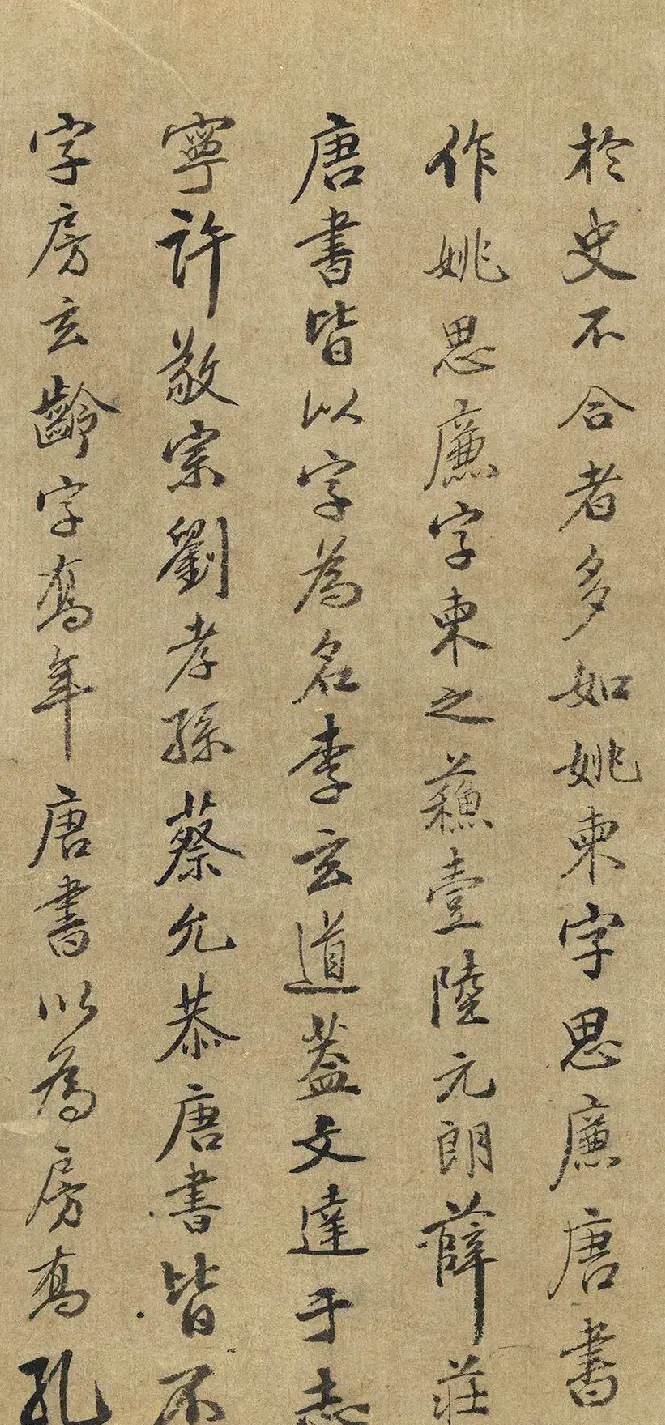 於史不合者多如姚柬字思廉唐書
作姚思廉字柬之蘇壹陸元朗薛莊
唐書皆以字為名李玄道蓋文達于志
寧許敬宗劉孝孫蔡允恭唐書皆不
字房玄齡字喬年唐書以為房喬孔